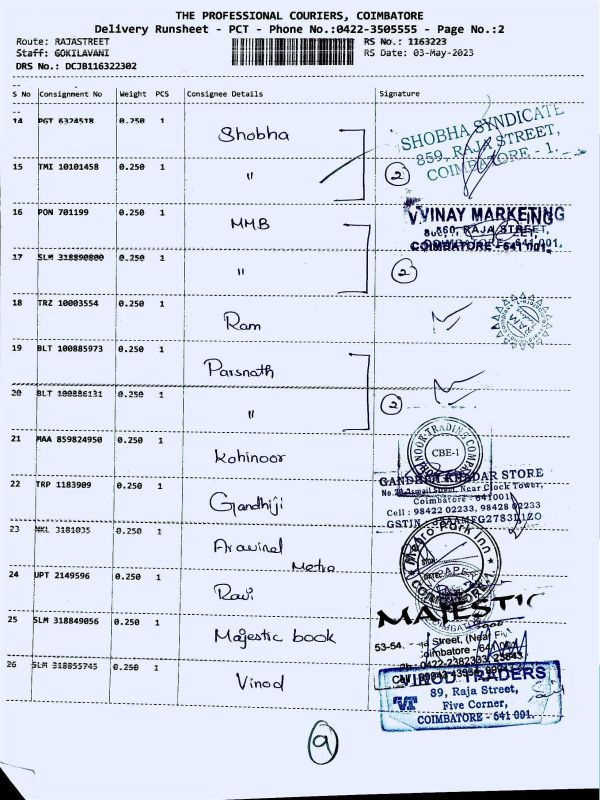 THE PROFESSIONAL COURIERS, COIMBATORE
Delivery Runsheet - PCT - Phone No.:0422-3505555 - Page No.:2
Route: RAJASTREET RS No.: 1163223
Staff: GOKILAVANI RS Date: 03-May-2023
DRS No.: DCJB116322302
S No Consignment No Weight PCS Consignee Details Signature
14 PGT 6324518 0.250 1 Shobha
SHOBHA SYNDICATE
859, RAJA STREET,
COIMBATORE - 1.
15 TMI 10101458 0.250 1 " 2
16 PON 701199 0.250 1 MMB
VINAY MARKETING
860, RAJA STREET,
COIMBATORE - 641 001.
17 SLM 318890800 0.250 1 " 2
18 TRZ 10003554 0.250 1 Ram
19 BLT 100885973 0.250 1 Parsnath
20 BLT 100886131 0.250 1 " 2
21 MAA 859824950 0.250 1 Kohinoor
KOHINOOR TRADING COMPANY
CBE-1
22 TRP 1183909 0.250 1 Gandhiji
GANDHIJI KHADAR STORE
Near Clock Tower,
Coimbatore - 641001
Cell : 98422 02233, 98428 02233
GSTIN
23 0.250 1 Aravind
Metro
Metro Park Inn
COIMBATORE-1
24 UPT 2149596 0.250 1 Ravi
25 SLM 318849056 0.250 1 Majestic book
MAJESTIC
53-54, Street,
Coimbatore - 641 001
Ph : 0422-2382333, 23843
26 SLM 318855745 0.250 1 Vinod
VINOD TRADERS
VT 89, Raja Street,
Five Corner,
COIMBATORE - 641 001.
9